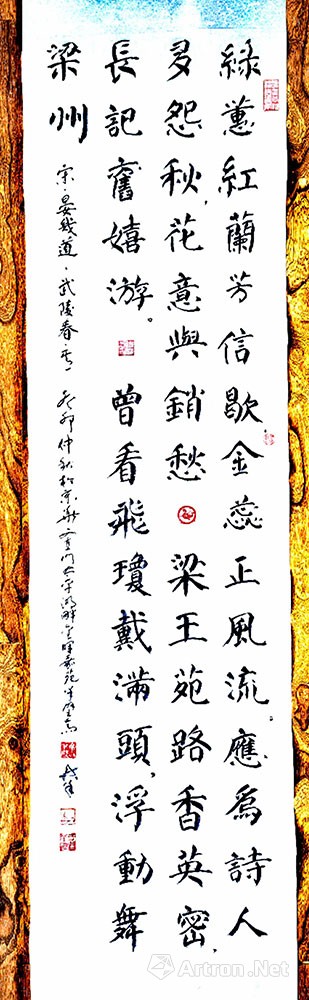 綠蕙紅蘭芳信歇金蕊正風流。應為詩人
多怨秋,花意與銷愁 梁王苑路香英密,
長記舊嬉游。曾看飛瓊戴滿頭,浮動舞
梁州
宋·晏幾道·武陵春·
癸卯仲秋於京華
Artron.Net